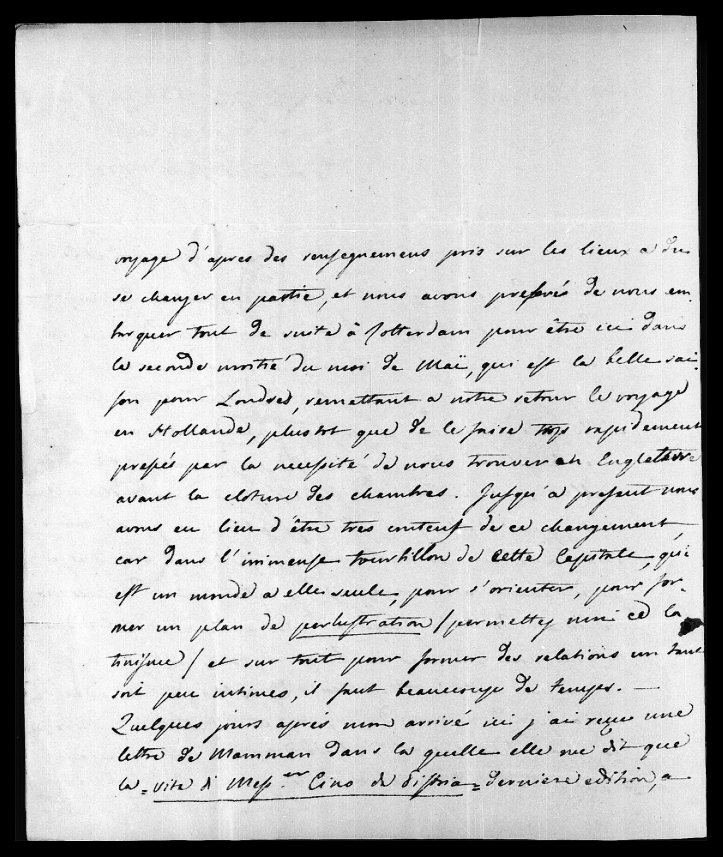 voyage d'apres des rensegnemens pris sur les lieux a du
se changer en partie, et nous avons preferés de nous em-
barquer tout de suite à Rotterdam pour être ici dans
la seconde moitié du moi de Maï, qui est la belle sai-
son pour Londres, remettant a notre retour le voyage
en Hollande, plustot que de le faire trop rapidement
pressés par la necessité de nous trouver en Engleterre
avant la cloture des chambres. Jusqu'a present nous
avons eu lieu d'être tres content de ce changement,
car dans l'immense tourbillon de cette Capitale, qui
est un monde a elle seule, pour s'orienter, pour for-
mer un plan de perlustration /permettez moi ce la-
tinisme/ et sur tout pour former des relations un tant
soit peu intimes, il faut beaucoup de temps. —
Quelques jours apres mon arrivé ici j'ai reçu une
lettre de Mamman dans la quelle elle me dit que
la = vita di Mess.er Cino da Pistoia = derniere edition, a